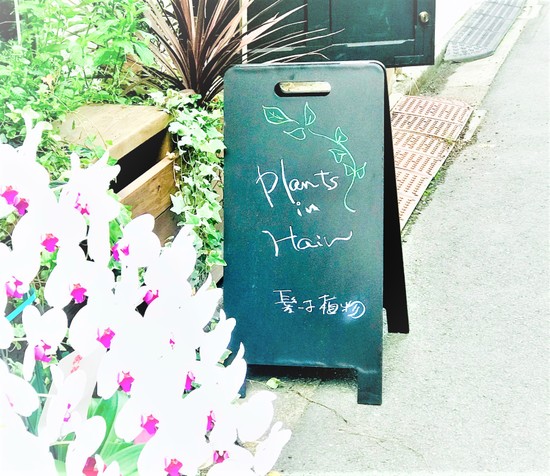 Plants
in
Hair
髪子植物